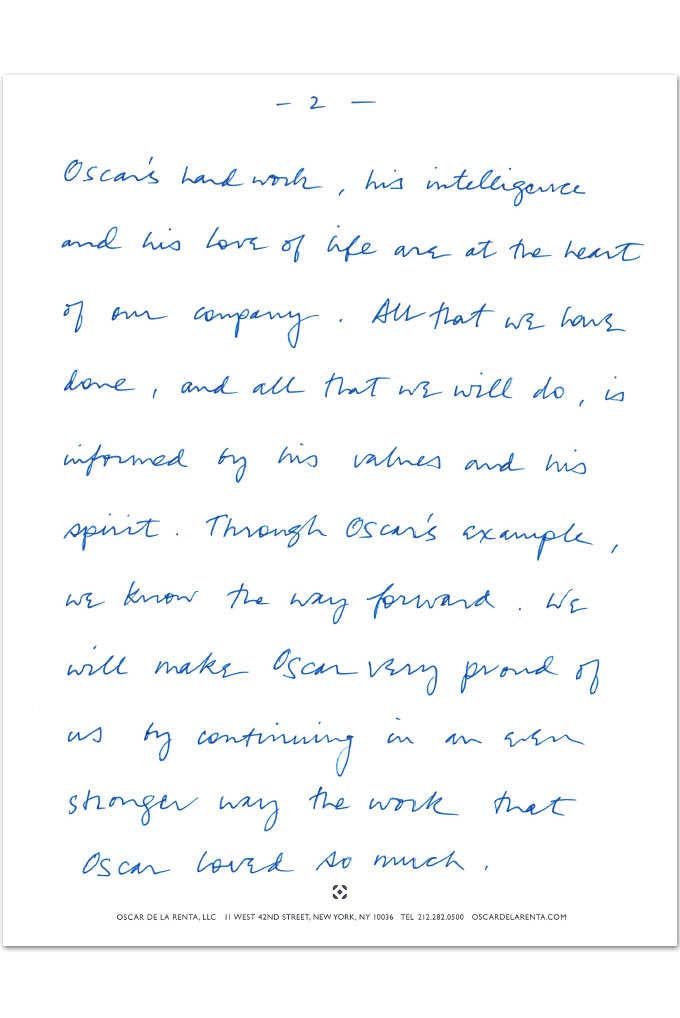 – 2 –
Oscar's hard work, his intelligence
and his love of life are at the heart
of our company. All that we have
done, and all that we will do, is
informed by his values and his
spirit. Through Oscar's example,
we know the way forward. We
will make Oscar very proud of
us by continuing in an even
stronger way the work that
Oscar loved so much.
OSCAR DE LA RENTA, LLC 11 WEST 42ND STREET, NEW YORK, NY 10036 TEL 212.282.0500 OSCARDELARENTA.COM